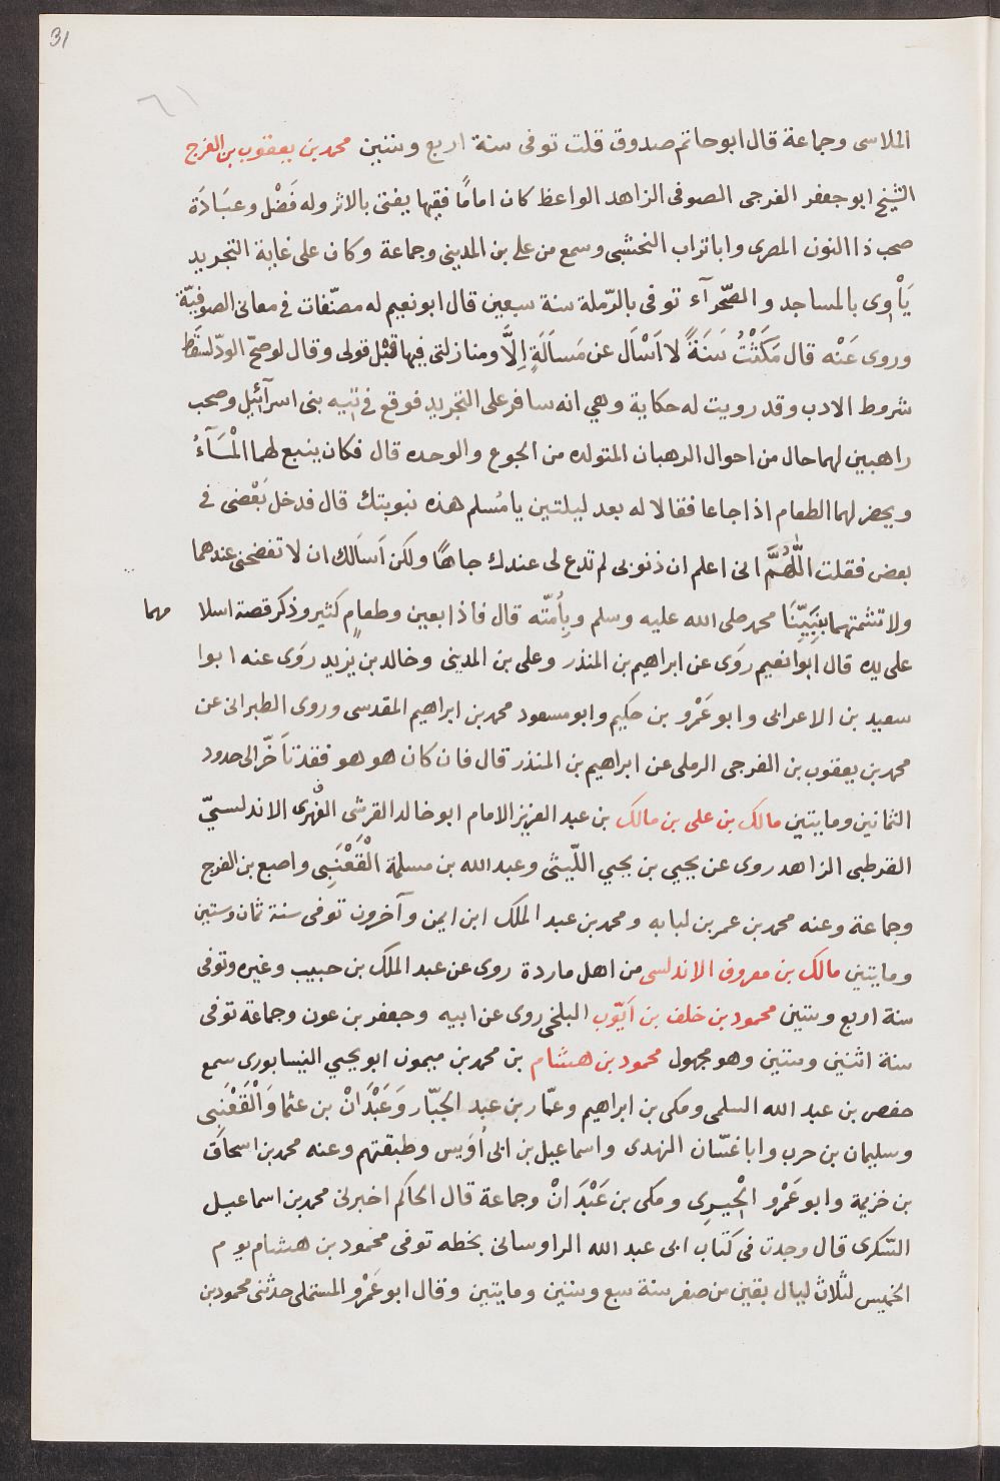 31
٦١
الملاسى وجماعة قال ابو حاتم صدوق قلت توفى سنة اربع وستين محمد بن يعقوب بن الفرج
الشيخ ابو جعفر الفرجى الصوفى الزاهد الواعظ كان امامًا فقيها يفتى بالاثر وله فَضْل وعبَادَة
صحب ذا النون المصرى وابا تراب النخشبى وسمع من على بن المدينى وجماعة وكان على غاية التجريد
يَأْوِى بالمساجد والصّحرآء توفى بالرّملة سنة سبعين قال ابو نعيم له مصنّفات فى معانى الصوفيّة
وروى عَنْه قال مَكَثْتُ سَنَةً لا اَسْأل عن مَسألَةٍ اِلَّا ومنازلتى فيها قَبْل قولى وقال لو صحّ الودّ لسقَط
شروط الادب وقد رويت له حكاية وهي انه سافر على التجريد فوقع فى تيه بنى اسرآئيل وصحب
راهبين لهما حال من احوال الرهبان المتولده من الجوع والوحده قال فكان ينبع لهما الْمَآءُ
ويحضر لهما الطعام اذا جاعا فقالا له بعد ليلتين يا مُسلم هذه نبوبتك قال فدخل بَعْضى فى
بعض فقلت اللّٰهُمَّ انى اعلم ان ذنوبى لم تدع لى عندك جاهًا ولكن اَسألك ان لا تفضحنى عندهما
ولا تشمتهما بنَبِيِّنَا محمد صلى الله عليه وسلم وبِأُمّته قال فاذا بعين وطعامٍ كثير وذكر قصة اسلا مهما
على يده قال ابوا نعيم روَى عن ابراهيم بن المنذر وعلى بن المدينى وخالد بن يزيد روَى عنه ابوا
سعيد بن الاعرابى وابو عَمْرو بن حكيم وابو مسعود محمد بن ابراهيم المقدسى وروى الطبرانى عن
محمد بن يعقوب بن الفرجى الرملى عن ابراهيم بن المنذر قال فان كان هو هو فقد تأخّر الى حدود
الثمانين ومايتين مالك بن على بن مالك بن عبد العزيز الامام ابو خالد القرشى الفُهرى الاندلسىّ
القرطبى الزاهد روى عن يحيي بن يحيي اللّيثى وعبد الله بن مسلمة الْقَعْنَبِى واصبع بن الفرج
وجماعة وعنه محمد بن عمر بن لبابه ومحمد بن عبد الملك ابن ايمن وآخرون توفى سنة ثمان وستين
ومايتين مالك بن معروف الاندلسى من اهل ماردة روى عن عبد الملك بن حبيب وغيره وتوفى
سنة اربع وستين محمود بن خلف بن اَيّوب البلخى روى عن ابيه وجعفر بن عون وجماعة توفى
سنة اثنين وستين وهو مجهول محمود بن هشام بن محمد بن ميمون ابو يحيي النيسابورى سمع
حفص بن عبد الله السلمى ومكى بن ابراهيم وعمّار بن عبد الجبّار وَعَبْدَانْ بن عثما وَالْقَعْنَبِى
وسليمان بن حرب وابا غسّان النهدى واسماعيل بن ابى اُوَيس وطبقتهم وعنه محمد بن اسحاق
بن خزيمة وابو عَمْرو الْحِيرِى ومكى بن عَبْدَانْ وجماعة قال الحاكم اخبرنى محمد بن اسماعيل
السّكرى قال وجدت فى كتاب ابى عبد الله الراوسانى بخطه توفى محمود بن هشام يوم
الخميس لثلاث ليال بقين من صفر سنة سبع وستين ومايتين وقال ابو عَمْرو المستملى حدثنى محمود بن